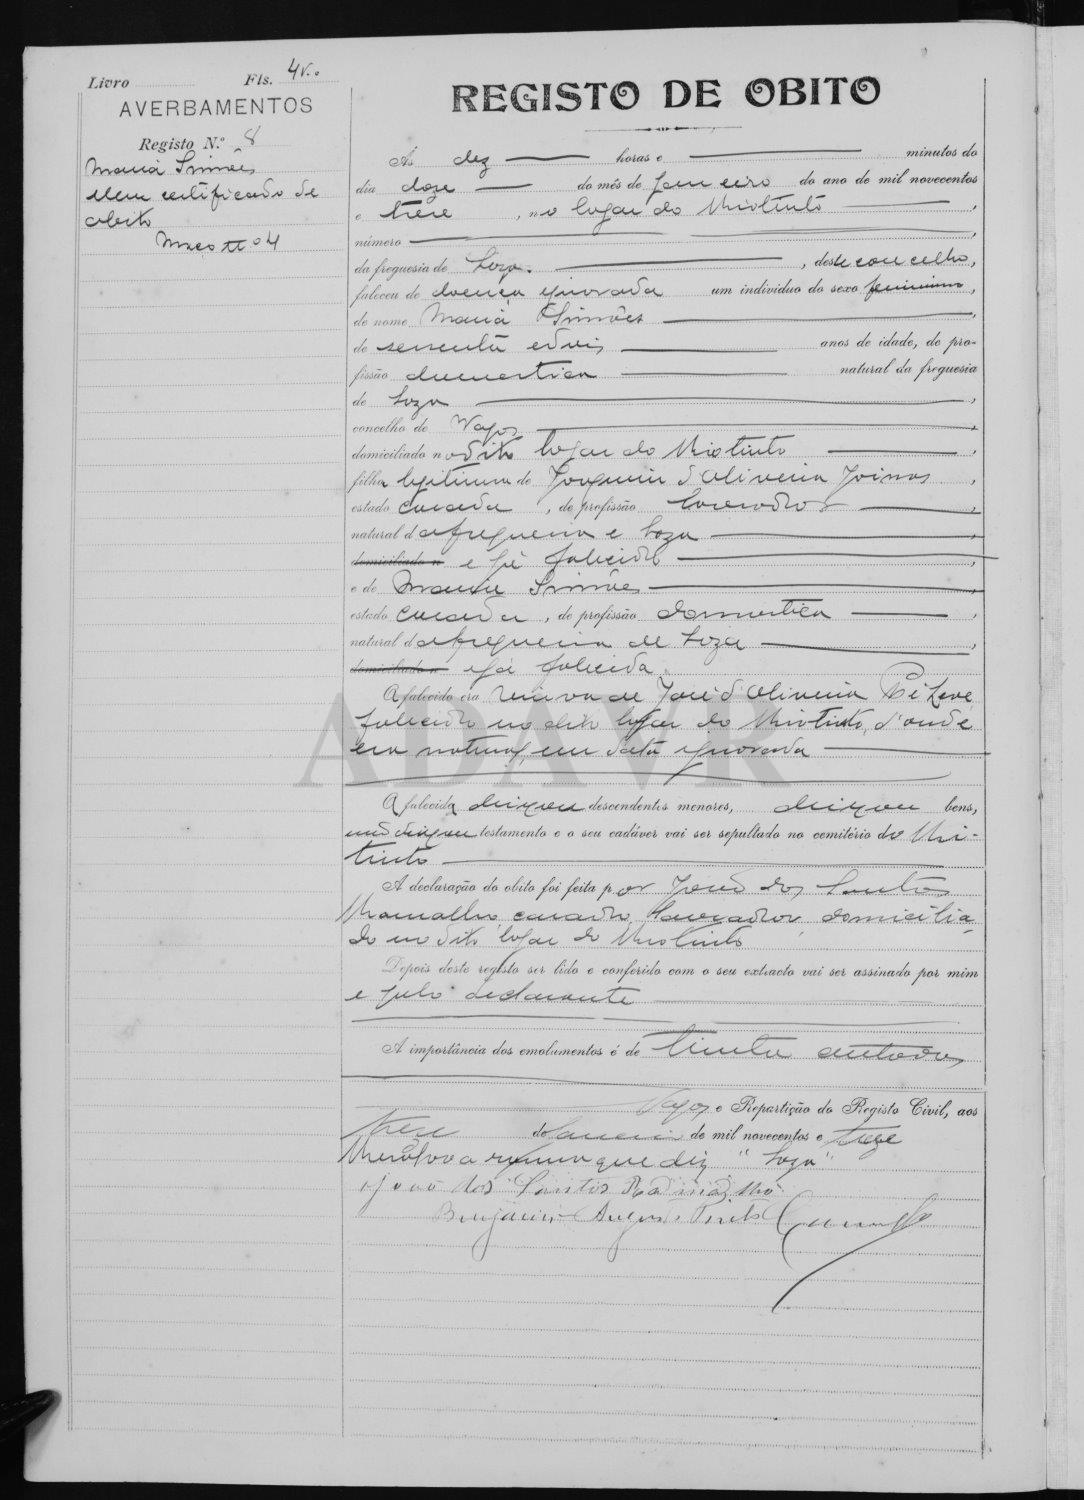 Livro Fls. 4v.
AVERBAMENTOS
Registo N.º 8
Maria Simões
Sem certificado de
obito
Maço nº 4
REGISTO DE OBITO
Ás dez horas e minutos do
dia doze do mês de Janeiro do ano de mil novecentos
e treze, no logar do Riotinto,
número
da freguesia de Soza, deste concelho,
faleceu de doença ignorada um individuo do sexo feminino,
de nome Maria Simões
de sessenta e dois anos de idade, de pro-
fissão domestica natural da freguesia
de Soza,
concelho de Vagos
domiciliado no dito logar do Riotinto,
filha legitima de Joaquim d'Oliveira,
estado casado, de profissão lavrador,
natural da freguesia e Soza
domiciliado n e já falecido,
e de Maria Simões
estado casada, de profissão domestica,
natural da freguesia de Soza,
domiciliado n e já falecida
A falecida era viuva de José d'Oliveira
falecido no dito logar do Riotinto, d'onde
era natural, em data ignorada
A falecida deixou descendentes menores, deixou bens,
não deixou testamento e o seu cadáver vai ser sepultado no cemitério do Rio-
tinto
A declaração do obito foi feita por João dos Santos
Ramalho, casado, lavrador, domicilia-
do no dito logar do Riotinto
Depois deste registo ser lido e conferido com o seu extracto vai ser assinado por mim
e pelo declarante
A importância dos emolumentos é de trinta centavos
Vagos e Repartição do Registo Civil, aos
treze de Janeiro de mil novecentos e treze
que diz "Soza"
João dos Santos Ramalho
Benjamin Augusto
ADAVR